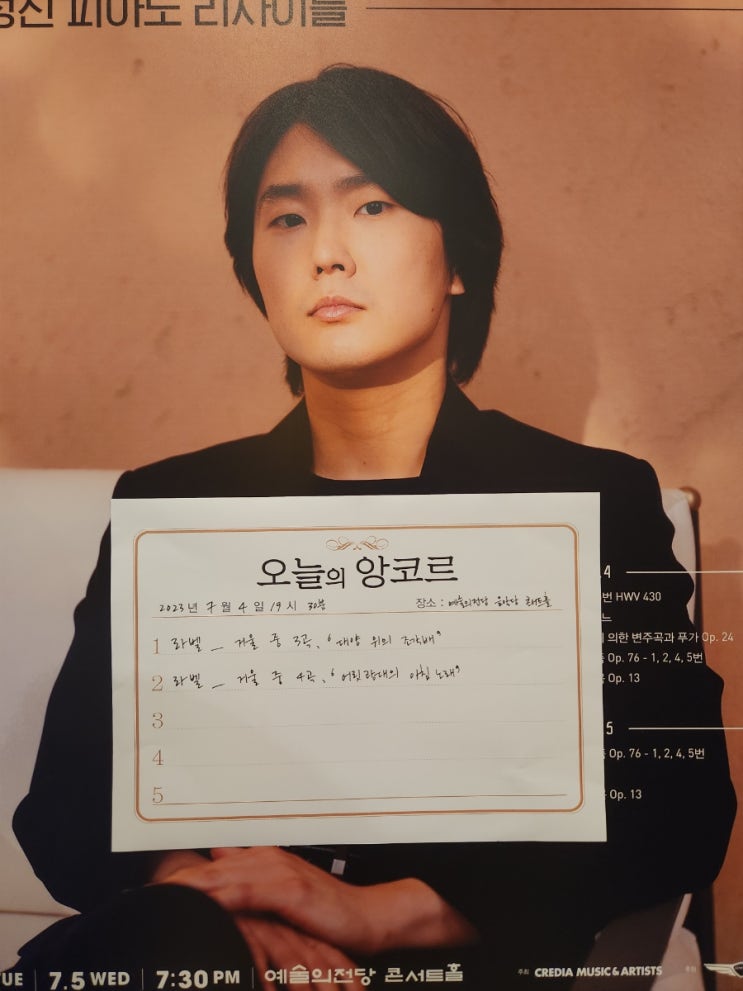 피아노 리사이틀
오늘의 앙코르
2023년 7월 4일 19시 30분 장소 : 예술의전당 음악당 콘서트홀
1 라벨 _ 거울 중 3곡, '대양 위의 조각배'
2 라벨 _ 거울 중 4곡, '어릿광대의 아침 노래'
3
4
5
4
번 HWV 430
의한 변주곡과 푸가 Op. 24
Op. 76 - 1, 2, 4, 5번
Op. 13
5
Op. 76 - 1, 2, 4, 5번
Op. 13
TUE | 7.5 WED | 7:30 PM | 예술의전당 콘서트홀 주최 CREDIA MUSIC & ARTISTS